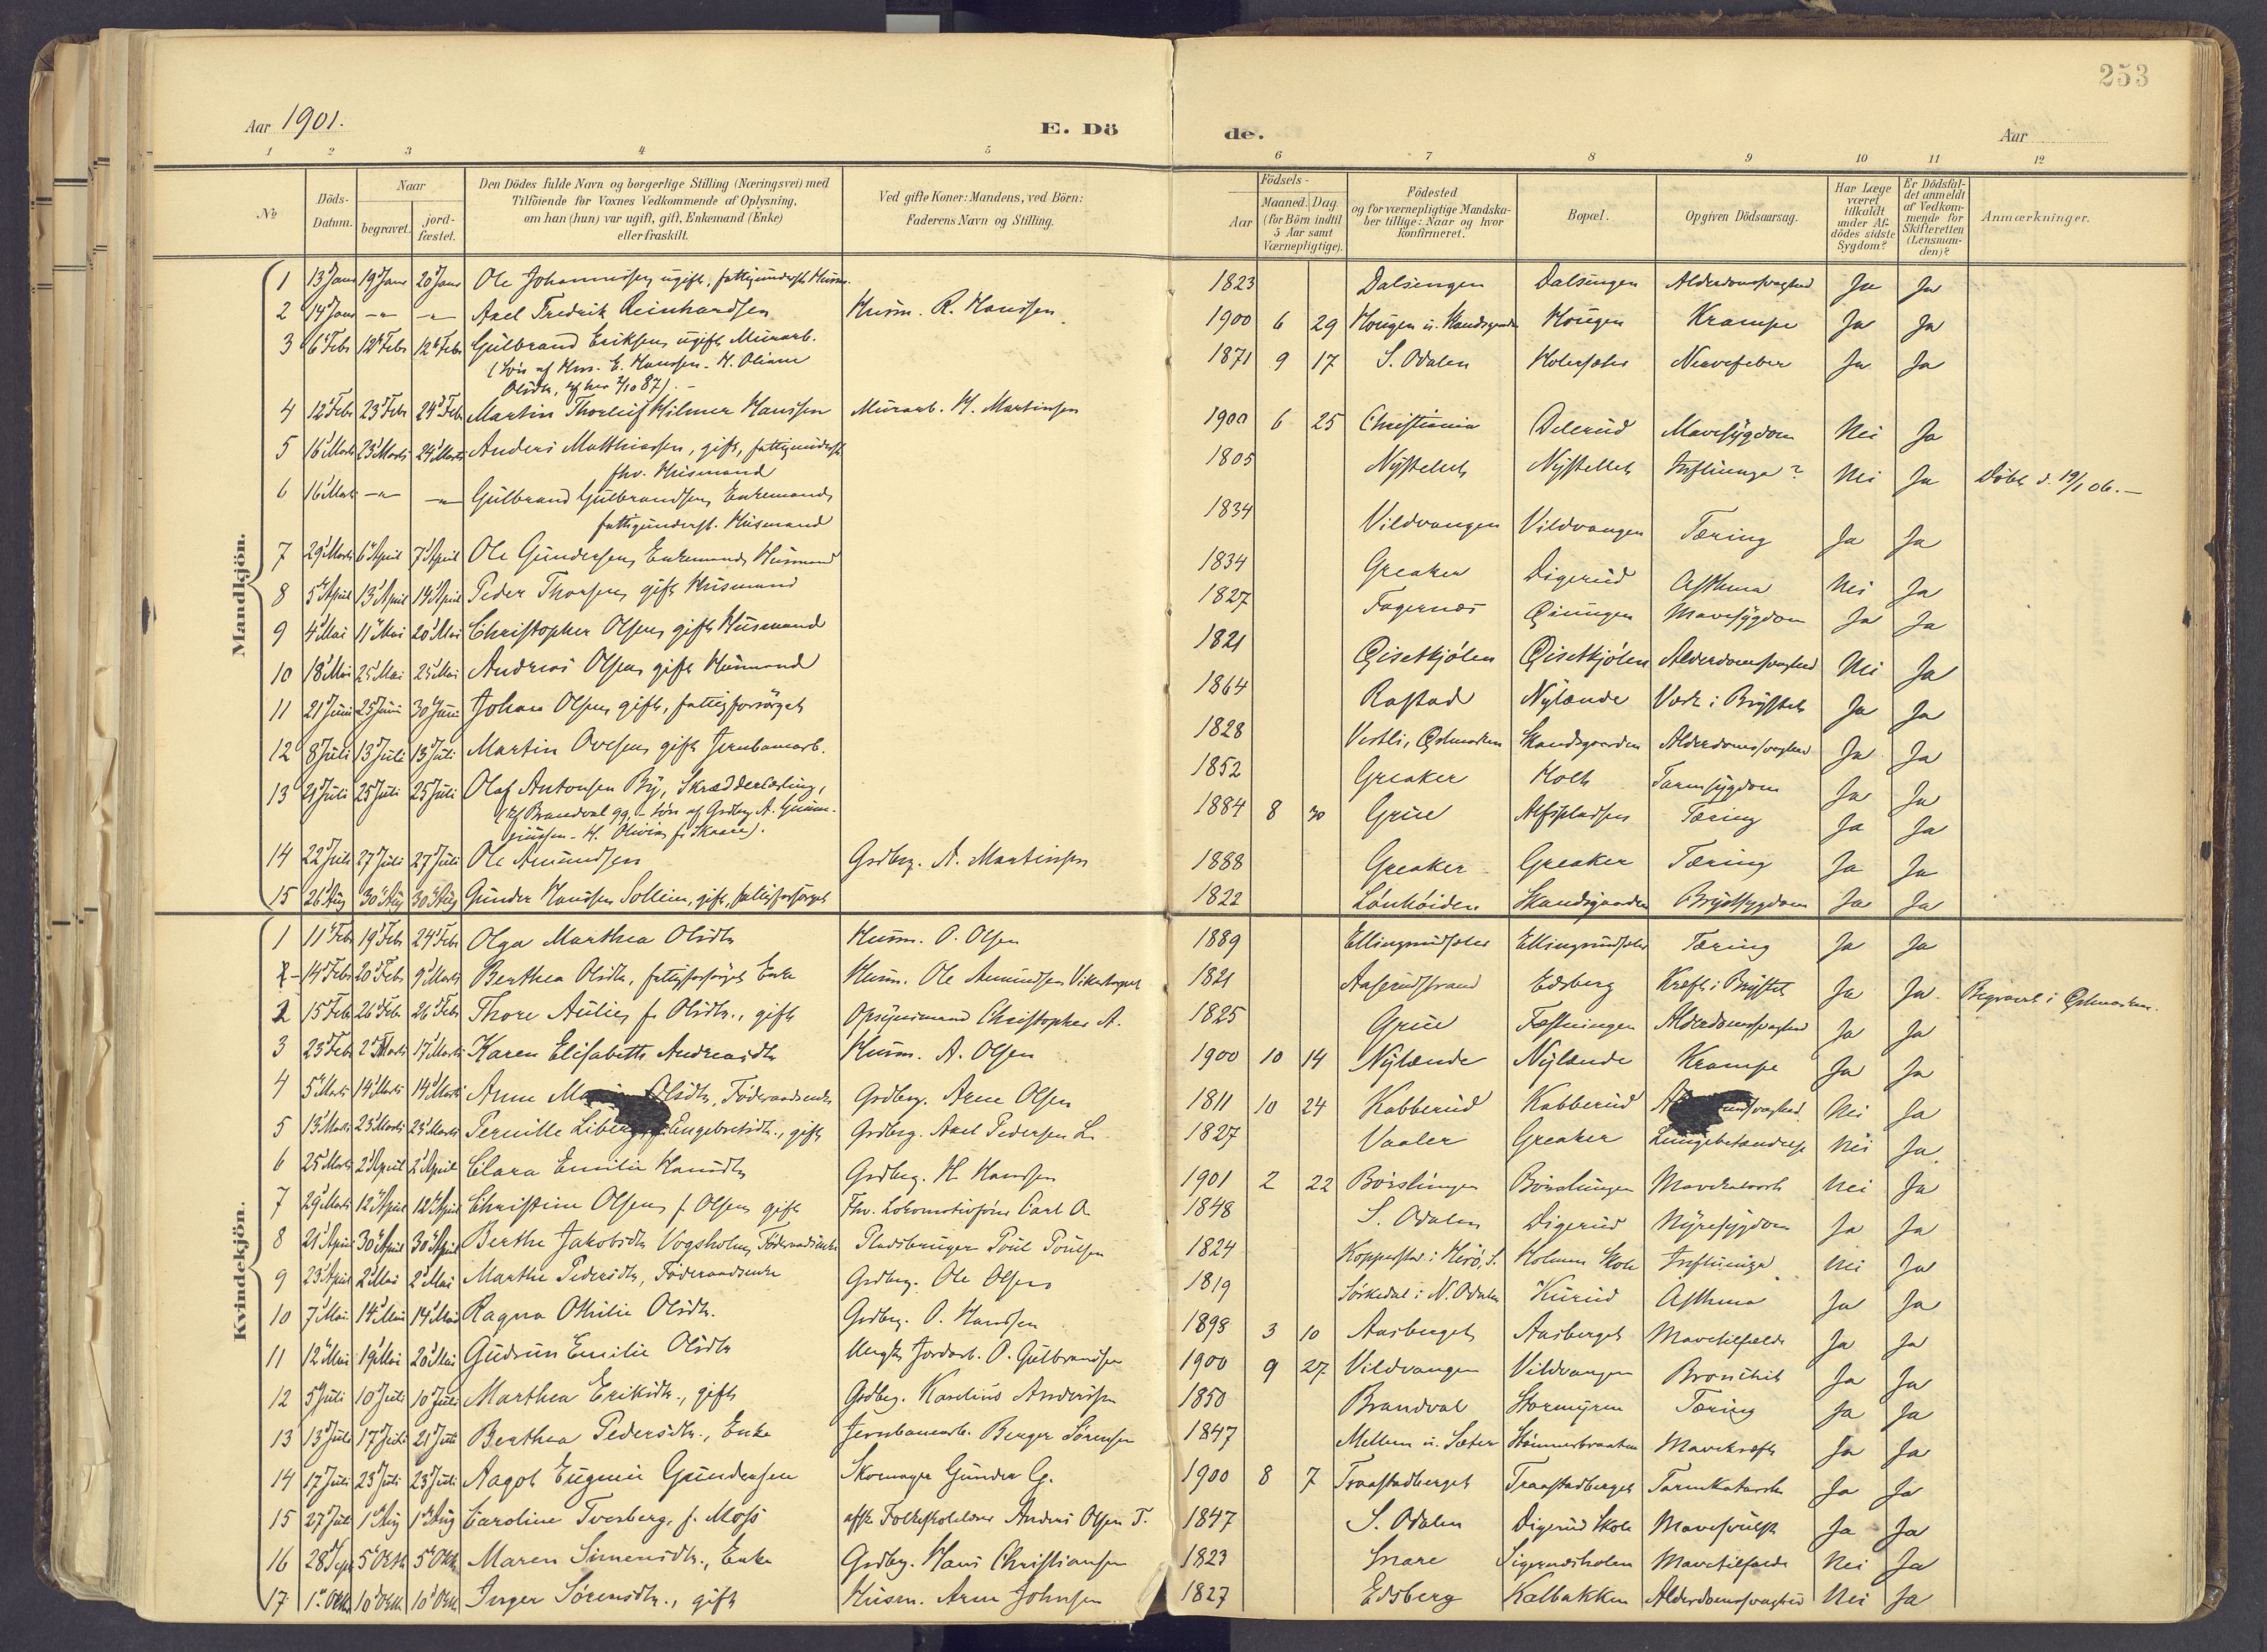 253
Aar 1901.
E. Dö
de.
Aar
1 2 3 4 5 6 7 8 9 10 11 12
No
Döds-Datum.
Naar
begravet.
jord-fæstet.
Den Dödes fulde Navn og borgerlige Stilling (Næringsvei) med
Tilföiende for Voxnes Vedkommende af Oplysning,
om han (hun) var ugift, gift, Enkemand (Enke)
eller fraskilt.
Ved gifte Koner: Mandens, ved Börn:
Faderens Navn og Stilling.
Födsels-
Aar
Maaned. Dag
(for Börn indtil
5 Aar samt
Værnepligtige).
Födested
og for værnepligtige Mandska-
ber tillige: Naar og hvor
konfirmeret.
Bopæl.
Opgiven Dödsaarsag.
Har Læge
været
tilkaldt
under Af-
dödes sidste
Sygdom?
Er Dödsfal-
det anmeldt
af Vedkom-
mende for
Skifteretten
(Lensman-
den)?
Anmærkninger.
Mandkjön.
1 13 Janr 19 Janr 20 Janr Ole Johannessen ugift, fattigunderst. Husm. 1823 Dalsengen Dalsengen Alderdomssvaghed Ja Ja
2 14 Janr -"- -"- Axel Fredrik Reinhardsen Husm. R. Hanssen 1900 6 29 Hougen u. Skandsgaarden Hougen Krampe Ja Ja
3 6 Febr 12 Febr 12 Febr Gulbrand Eriksen ugift Murarb. 1871 9 17 S. Odalen Holersæter Nervefeber Ja Ja
(Søn af Hus. E. Hanssen - H. Oliane
Olsdtr, 2/10 87). -
4 12 Febr 23 Febr 24 Febr Martin Thorleif Hilmer Hanssen Murarb. H. Martinsen 1900 6 25 Christiania Delerud Mavesygdom Nei Ja
5 16 Marts 23 Marts 24 Marts Anders Matthiassen, gift, fattigunderst. 1805 Nystelet Nystellet Influenza? Nei Ja Døbt d. 19/1 06. -
fhv. Husmand
6 16 Marts -"- -"- Gulbrand Gulbrandsen Enkemand, 1834 Vildvangen Vildvangen Tæring Ja Ja
fattigunderst. Husmand
7 29 Marts 6 April 7 April Ole Gundersen Enkemand Husmand 1834 Greaker Digerud Asthma Nei Ja
8 5 April 13 April 14 April Peder Thorsen gift Husmand 1827 Fagernæs Mavesygdom Ja Ja
9 4 Mai 11 Mai 20 Mai Christopher Olsen gift Husmand 1821 Øisetkjølen Øisetkjølen Alderdomssvaghed Nei Ja
10 18 Mai 25 Mai 25 Mai Andreas Olsen gift Husmand 1864 Rastad Nylænde Værk i Brystet Ja Ja
11 21 Juni 25 Juni 30 Juni Johan Olsen gift, fattigforsørget 1828 Vestli, Eidsmarken Skandsgaarden Alderdomssvaghed Ja Ja
12 8 Juli 13 Juli 13 Juli Martin Ovesen gift Jernbanearb. 1852 Greaker Holt Tarmsygdom Ja Ja
13 21 Juli 25 Juli 25 Juli Olaf Antonsen By, Skrædderlærling, 1884 8 30 Grue Alfspladsen Tæring Ja Ja
(Kf Brandval 99 - Søn af Grdbrg. A.
- H. Olivia f. Skaare).
14 22 Juli 27 Juli 27 Juli Ole Amundsen Grdbrg. A. Martinsen 1888 Greaker Greaker Tæring Ja Ja
15 26 Aug 30 Aug 30 Aug Gunder Hanssen Sollien, gift, fattigforsørget 1822 Lønhøiden Skandsgaarden Brystsygdom Ja Ja
Kvindekjön.
1 11 Febr 19 Febr 24 Febr Olga Marthea Olsdtr Husm. O. Olsen 1889 Ellingsrudsæter Ellingsrudsæter Tæring Ja Ja
- 14 Febr 20 Febr 9 Marts Berthea Olsdtr, fattigforsørget Enke Husm. Ole Amundsen Vikertorpet 1821 Aaserudstrand Edsberg Kræft i Brystet Ja Ja Begravet i Eidsmarken.
2 15 Febr 26 Febr 26 Febr Thore Aulie f. Olsdtr., gift Opsynsmand Christopher A. 1825 Grue Fæstningen Alderdomssvaghed Ja Ja
3 23 Febr 2 Marts 17 Marts Karen Elisabeth Andreasdtr Husm. A. Olsen 1900 10 14 Nylænde Nylænde Krampe Ja Ja
4 5 Marts 14 Marts 14 Marts Anne Olsdtr, Føderaadsenke Grdbrg. Arne Olsen 1811 10 24 Kabberud Kabberud Nei Ja
5 13 Marts 23 Marts 23 Marts Pernille Liberg Engebretsdtr., gift Grdbrg. Axel Pedersen L. 1827 Vaaler Greaker Lungebetændelse Nei Ja
6 25 Marts 2 April 2 April Clara Emilie Hansdtr Grdbrg. H. Hanssen 1901 2 22 Børslingen Børslungen Mavekatarrh Nei Ja
7 29 Marts 12 April 12 April Christine Olsen f. Olsen gift Fhv. Lokomotivfører Carl O. 1848 S. Odalen Digerud Nyresygdom Ja Ja
8 21 April 30 April 30 April Berthe Jakobsdtr Vogsholm, Føderaadsenke Pladsbruger Poul Poulsen 1824 Holmen Skole Influenza Nei Ja
9 23 April 2 Mai 2 Mai Marthe Pedersdtr, Føderaadsenke Grdbrg. Ole Olsen 1819 Sørkedal i N. Odalen Kurud Asthma Ja Ja
10 7 Mai 14 Mai 14 Mai Ragna Othilie Olsdtr. Grdbrg. O. Hanssen 1898 3 10 Aasberget Aasberget Mavetilfælde Ja Ja
11 12 Mai 19 Mai 20 Mai Gudrun Emilie Olsdtr Ungk. Jordarb. O. Gulbrandsen 1900 9 27 Vildvangen Vildvangen Bronchit Ja Ja
12 5 Juli 10 Juli 10 Juli Marthea Eriksdtr., gift Grdbrg. Karelius Andersen 1850 Brandval Stormyren Tæring Ja Ja
13 13 Juli 17 Juli 21 Juli Berthea Pedersdtr., Enke Jernbanearb. Berger Sørensen 1847 Mellem u. Sæter Mavekræft Ja Ja
14 17 Juli 23 Juli 23 Juli Aagot Eugenie Gundersen Skomager Gunder G. 1900 8 7 Traastadberget Traastadberget Tarmkatarrh Ja Ja
15 27 Juli 1 Aug 1 Aug Caroline Tvesberg, f. Moss afsk. Folkeskolelærer Anders Olsen T. 1847 S. Odalen Digerud Skole Mavesvulst Ja Ja
16 28 Sept 5 Oktb 5 Oktb Maren Simensdtr., Enke Grdbrg. Hans Christiansen 1823 Snare Sigernesholen Mavetilfælde Nei Ja
17 1 Oktb 10 Oktb 10 Oktb Inger Sørensdtr., gift Husm. Arne Johnsen 1827 Edsberg Kalbakken Alderdomssvaghed Nei Ja